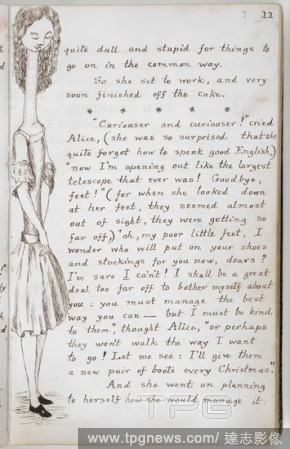 7 11
quite dull and stupid for things to
go on in the common way.
So she set to work, and very
soon finished off the cake.
* * * * * *
"Curiouser and curiouser!" cried
Alice, (she was so surprised that she
quite forgot how to speak good English,)
"now I'm opening out like the largest
telescope that ever was! Goodbye,
feet!" (for when she looked down
at her feet, they seemed almost
out of sight, they were getting so
far off,) "oh, my poor little feet, I
wonder who will put on your shoes
and stockings for you now, dears?
I'm sure I ca'n't! I shall be a great
deal too far off to bother myself about
you: you must manage the best
way you can — but I must be kind
to them", thought Alice, "or perhaps
they won't walk the way I want
to go! Let me see: I'll give them
a new pair of boots every Christmas."
And she went on planning
to herself how she would manage it:
TPG
www.tpgnews.com / 達志影像